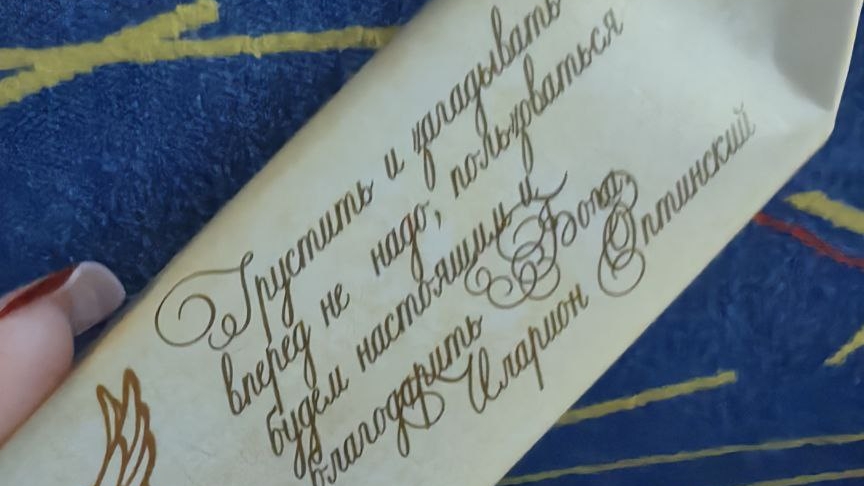 Грустить и загадывать
вперед не надо, пользоваться
будем настоящим и
благодарить Бога
Иларион Оптинский